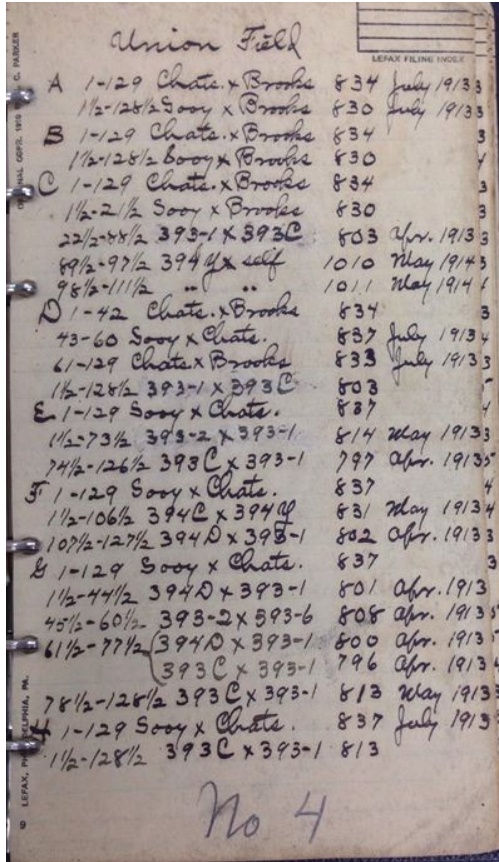 Union Field
LEFAX FILING INDEX
A 1-129 Chats. x Brooks 834 July 1913
1½-128½ Sooy x Brooks 830 July 1913
B 1-129 Chats. x Brooks 834
1½-128½ Sooy x Brooks 830
C 1-129 Chats. x Brooks 834
1½-21½ Sooy x Brooks 830
22½-88½ 393-1 x 393C 803 Apr. 1913
89½-97½ 394Y x self 1010 May 1914
98½-111½ " " 1011 May 1914
D 1-42 Chats. x Brooks 834
43-60 Sooy x Chats. 837 July 1913
61-129 Chats. x Brooks 833 July 1913
1½-128½ 393-1 x 393C 803
E 1-129 Sooy x Chats. 837
1½-73½ 393-2 x 393-1 814 May 1913
74½-126½ 393C x 393-1 797 Apr. 1913
F 1-129 Sooy x Chats. 837
1½-106½ 394C x 394Y 831 May 1913
107½-127½ 394D x 393-1 802 Apr. 1913
G 1-129 Sooy x Chats. 837
1½-44½ 394D x 393-1 801 Apr. 1913
45½-60½ 393-2 x 393-6 808 Apr. 1913
61½-77½ (394D x 393-1 800 Apr. 1913
393C x 393-1 796 Apr. 1913
78½-128½ 393C x 393-1 813 May 1913
H 1-129 Sooy x Chats. 837 July 1913
1½-128½ 393C x 393-1 813
No 4
9
LEFAX, PHILADELPHIA, PA.
C. PARKER